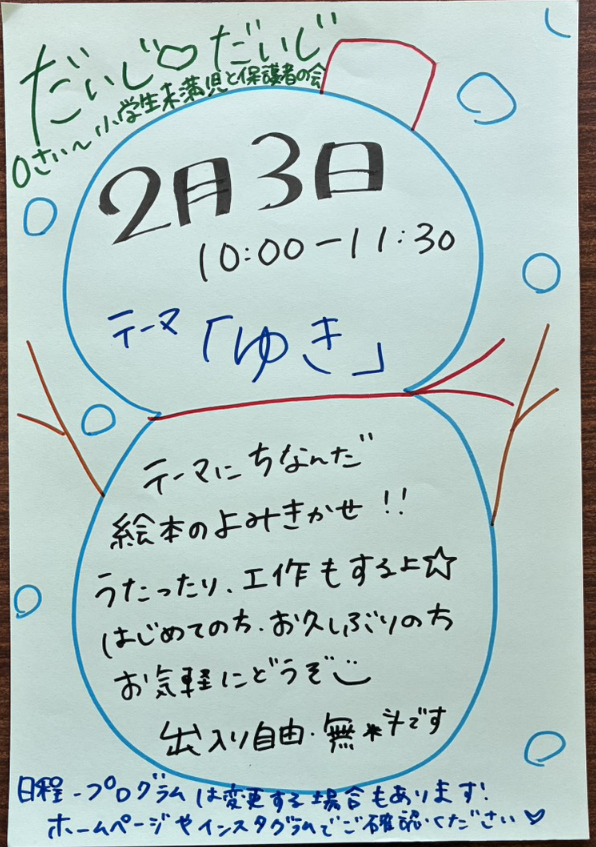 だいじ♡だいじ
0さい〜小学生未満児と保護者の会
2月3日
10:00ー11:30
テーマ「ゆき」
テーマにちなんだ
絵本のよみきかせ!!
うたったり、工作もするよ☆
はじめての方・お久しぶりの方
お気軽にどうぞ
出入り自由・無料です
日程・プログラムは変更する場合もあります!
ホームページやインスタグラムでご確認ください♡